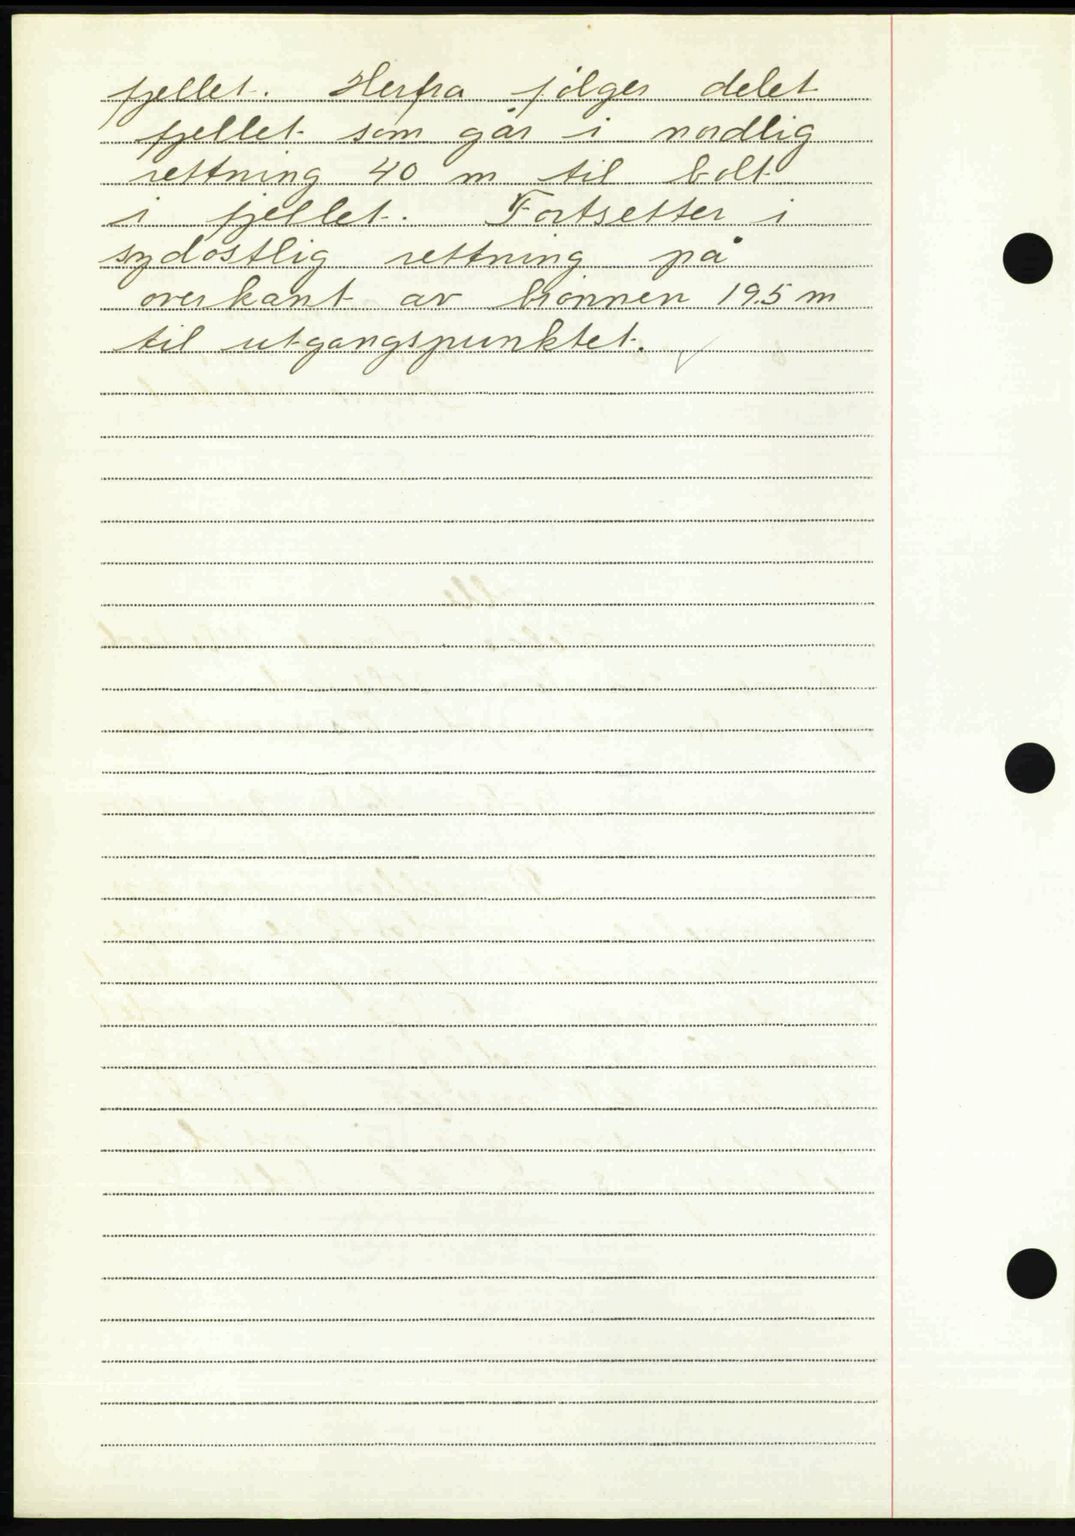 fjellet. Herfra følger delet
fjellet som går i nordlig
rettning 40 m til bolt
i fjellet. Fortsetter i
sydøstlig rettning på
overkant av brønnen 19.5 m
til utgangspunktet.